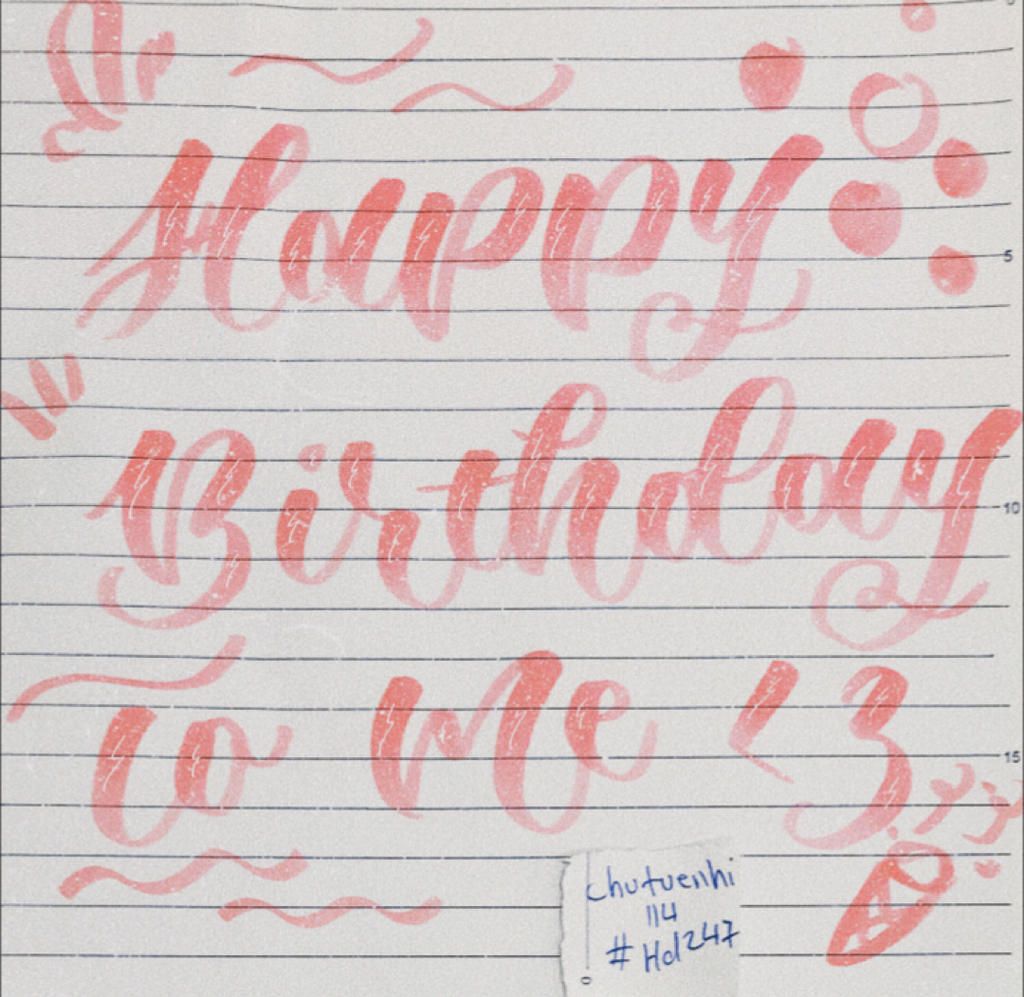 Happy
5
Birthday
10
to me <3
15
chutuenhi
114
#Hd247
0